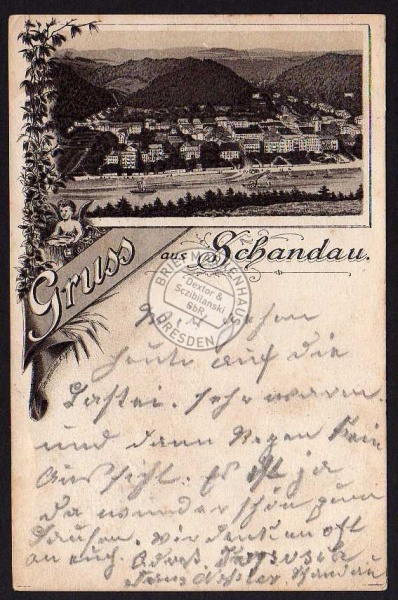 Gruss aus Schandau.
BRIEFMARKENHAUS
Dextor &
Sczibilanski
GbR
DRESDEN
heute auf die
Bastei. Sehr warm
und dann Regen kein
Aussicht. Es ist ja
da wunderschön zum
Laufen. Wir denken oft
an euch. Adress.
Schandau